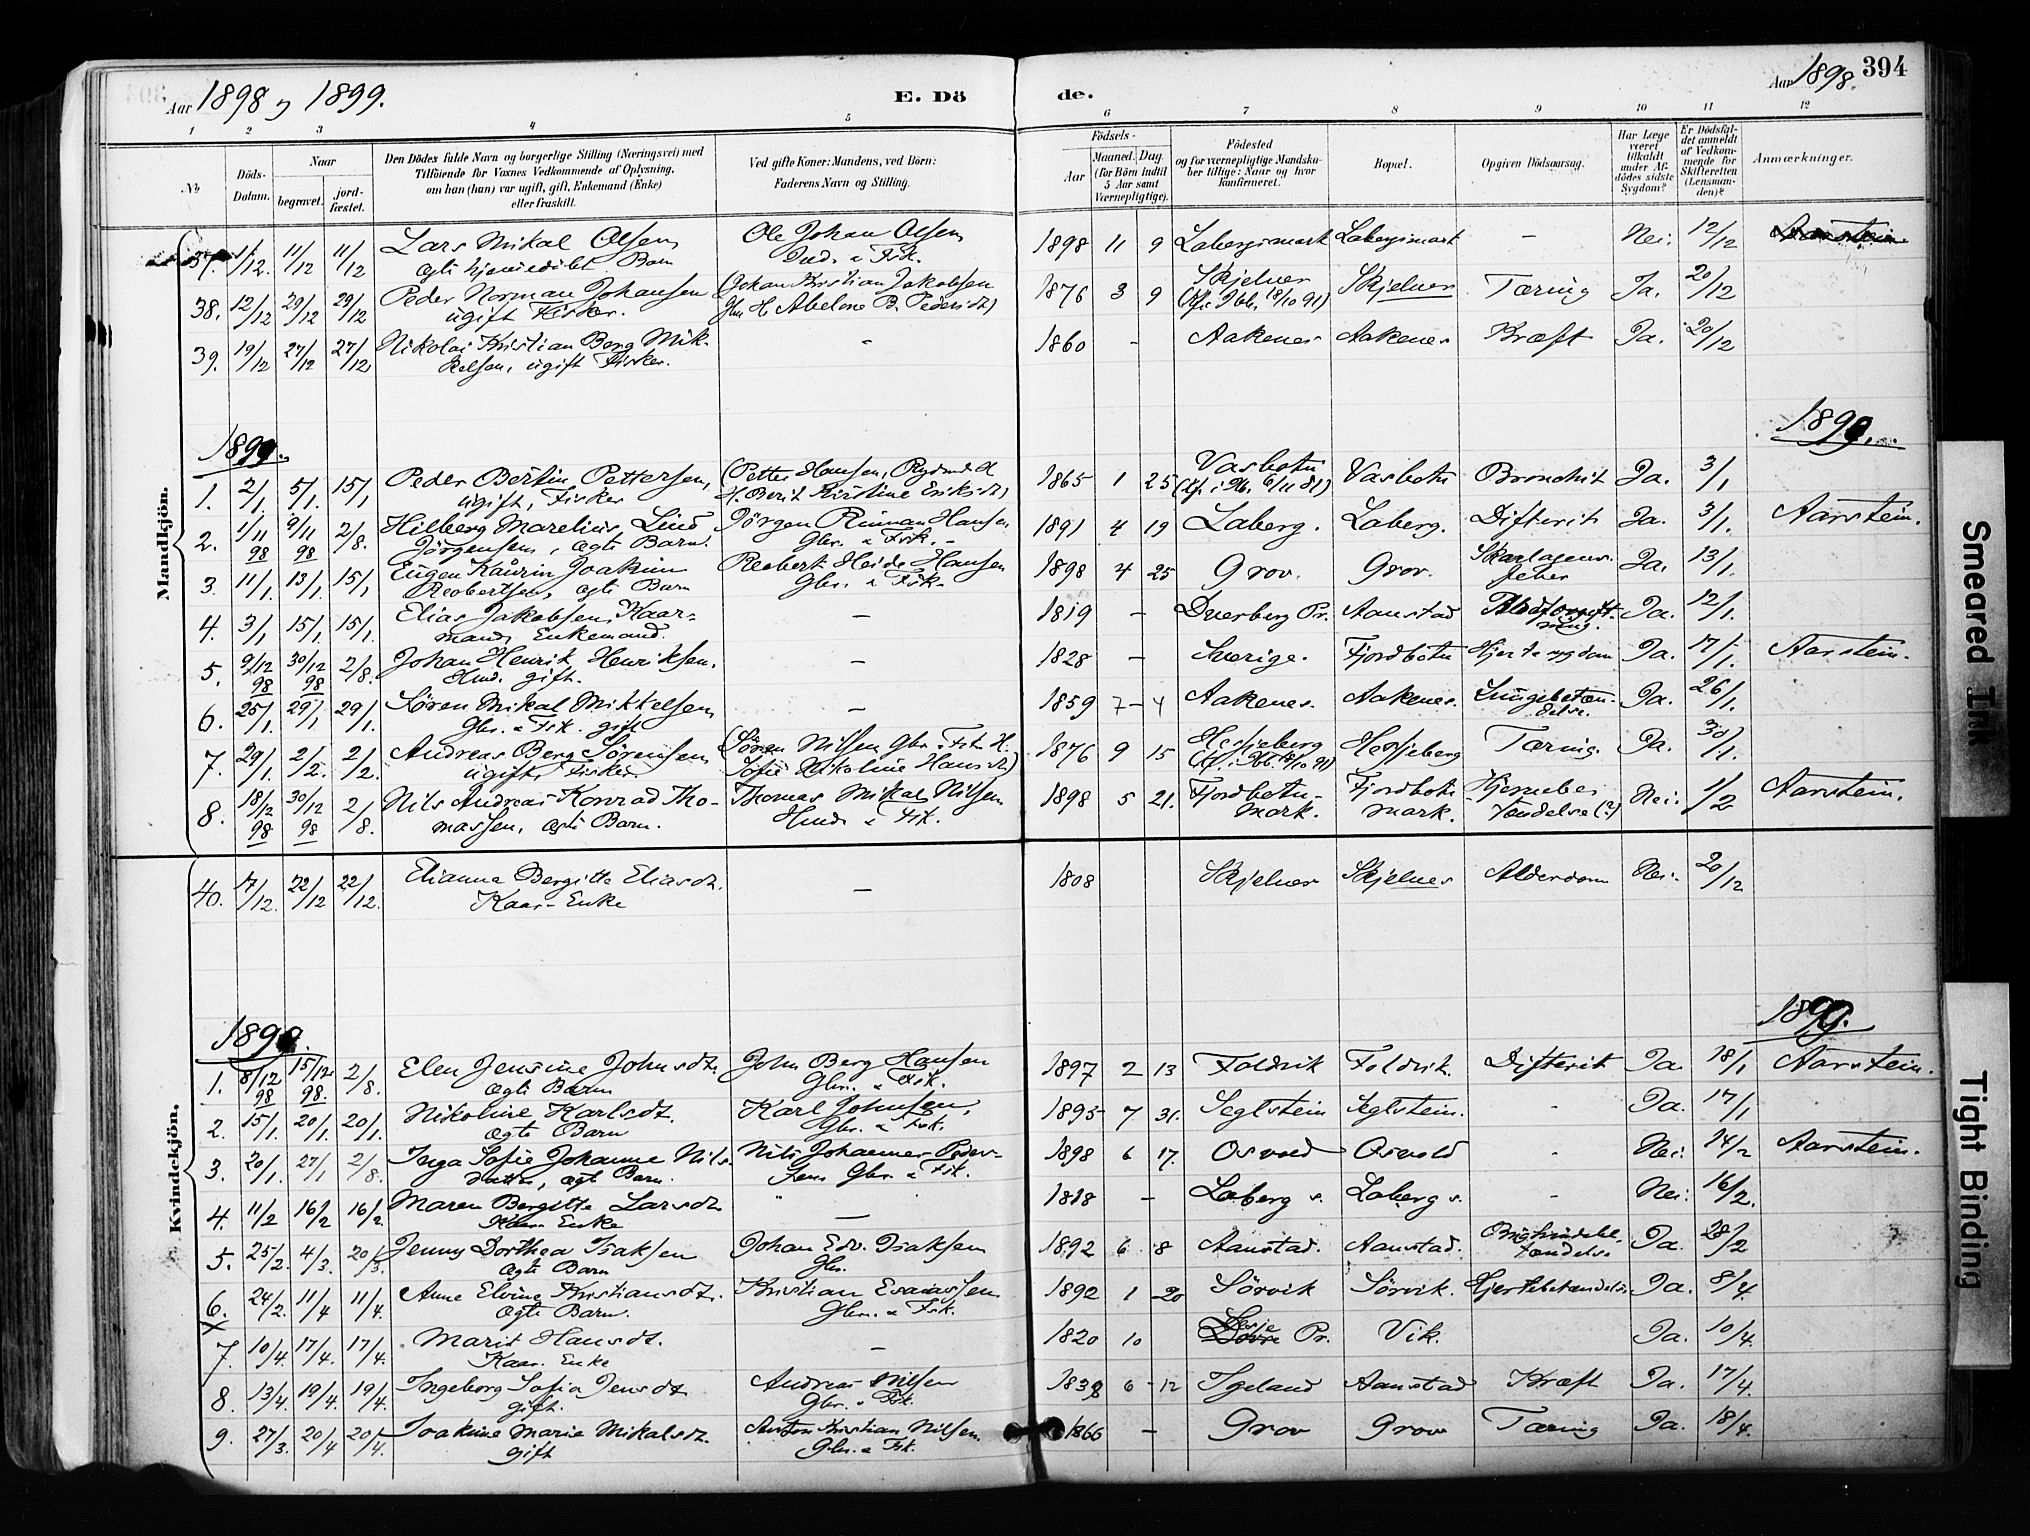 Aar 1898 og 1899. E. Dö de. Aar 1898. 394
1 2 3 4 5 6 7 8 9 10 11 12
No Döds-Datum. Naar begravet. jord-fæstet. Den Dödes fulde Navn og borgerlige Stilling (Næringsvei) med Tilföiende for Voxnes Vedkommende af Oplysning, om han (hun) var ugift, gift, Enkemand (Enke) eller fraskilt. Ved gifte Koner: Mandens, ved Börn: Faderens Navn og Stilling. Födsels- Aar Maaned. Dag. (for Börn indtil 5 Aar samt Værnepligtige). Födested og for værnepligtige Mandskaber tillige: Naar og hvor konfirmeret. Bopæl. Opgiven Dödsaarsag. Har Læge været tilkaldt under Afdödes sidste Sygdom? Er Dödsfaldet anmeldt af Vedkommende for Skifteretten (Lensmanden)? Anmærkninger.
Mandkjön.
37. 1/12. 11/12 11/12 Lars Mikal Olsen, Ole Johan Olsen 1898 11 9 Labergsmark Labergsmark - Nei. 12/12
ægte hjemmedøbt Barn Inds. & Fsk.
38. 12/12 29/12 29/12 Peder Norman Johansen (Johan Kristian Jakobsen 1876 3 9 Skjelnes Skjelnes Tæring Ja. 20/12
ugift Fisker. H. Abelone B. Pedersdt)
39. 19/12 27/12 27/12 Nikolai Kristian Berg Mik- - 1860 - Aakenes Aakenes Kræft Ja. 20/12
kelsen, ugift Fisker.
1899. 1899.
1. 2/1. 5/1. 15/1 Peder Bertin Pettersen, (Petter Hansen, 1865 1 25 Vasbotn Vasbotn Bronchit Ja. 3/1
ugift, Fisker H. Berit Kirstine Eriksdt)
2. 1/11 98 9/11 98 2/8. Hilberg Marelius Lind Jörgen Riman Hansen 1891 4 19 Laberg. Laberg. Difterit Ja. 3/1. Aarstein.
Jörgensen, ægte Barn. Gbr. & Fsk. -
3. 11/1. 13/1. 15/1 Eugen Kaurin Joakim Reobert Heide Hansen 1898 4 25 Grov. Grov. Skarlagens- Ja. 13/1.
Reobertsen, ægte Barn Gbr. & Fsk. feber
4. 3/1 15/1. 15/1. Elias Jakobsen, Kaar- - 1819 - Dverberg Pr. Aanstad Blodforgift- Ja. 12/1.
mand, Enkemand. ning.
5. 9/12 98 30/12 98 2/8. Johan Henrik Henriksen. - 1828 - Sverige. Fjordbotn Hjertesygdom Ja. 17/1. Aarstein.
Hmd. gift.
6. 25/1. 29/1 29/1. Sören Mikal Mikkelsen, - 1859 7 - 4 Aakenes. Aakenes. Lungebetæn- Ja. 26/1.
Gbr. & Fsk. gift delse.
7. 29/1. 2/2. 2/2. Andreas Berg Sörensen, (Sören Nilsen Gbr. & Fsk. H. 1876 9 15 Hesjeberg Hesjeberg Tæring. Ja. 30/1.
ugift Fisker Sofie Nikoline Hansdt)
8. 18/12 98 30/12 98 2/8. Nils Andreas Konrad Tho- Thomas Mikal Nilsen 1898 5 21. Fjordbotn- Fjordbotn Hjernebe- Nei. 1/2 Aarstein.
massen, ægte Barn. Hmd. & Fsk. mark. mark. tændelse (?)
Kvindekjön.
40. 17/12. 22/12 22/12. Elianna Bergitte Eliasdt. - 1808 Skjelnes Skjelnes Alderdom Nei. 20/12
Kaar-Enke
1899. 1899.
1. 8/12 98 15/12 98. 2/8. Elen Jensine Johnsdt. John Berg Hansen 1897 2 13 Foldvik Foldvik. Difterit Ja. 18/1 Aarstein.
ægte Barn Gbr. & Fsk.
2. 15/1. 20/1. 20/1. Nikoline Karlsdt. Karl Johnsen, 1895 7 31. Seglstein Seglstein. - Ja. 17/1
ægte Barn Gbr. & Fsk.
3. 20/1. 27/1 2/8. Inga Sofie Johanne Nils- Nils Johannes Peder- 1898 6 17. Osvold Osvold - Nei. 14/2 Aarstein.
datter, ægte Barn. sen Gbr. & Fsk.
4. 11/2 16/2 16/2. Maren Bergitte Larsdt. - 1818 - Laberg s. Laberg s. - Nei. 16/2.
Kaar Enke
5. 25/2. 4/3. 20/3. Jenny Dorthea Isaksen Johan Edv. Isaksen 1892 6 8 Aanstad. Aanstad. Brysthindebe- Ja. 28/2
ægte Barn Gbr. tændelse
6. 24/2. 11/4 11/4. Anne Elvine Kristiansdt. Kristian Esaiassen 1892 1 20 Sörvik Sörvik. Hjertebetændelse Ja. 8/4.
ægte Barn. Gbr. & Fsk.
7. 10/4. 17/4. 17/4. Marit Hansdt. - 1820 10 Lesje Pr. Vik. Ja. 10/4.
Kaar. Enke
8. 13/4. 19/4. 19/4. Ingeborg Sofia Jensdt. Andreas Nilsen 1838 6 - 12 Igeland Aanstad Kræft Ja. 17/4.
gift. Gbr. & Fsk.
9. 27/3. 20/4 20/4. Joakime Marie Mikalsdt. Anton Kristian Nilsen. 1866 - Grov Grov Tæring Ja. 18/4.
gift Gbr. & Fsk.
Smeared Ink
Tight Binding